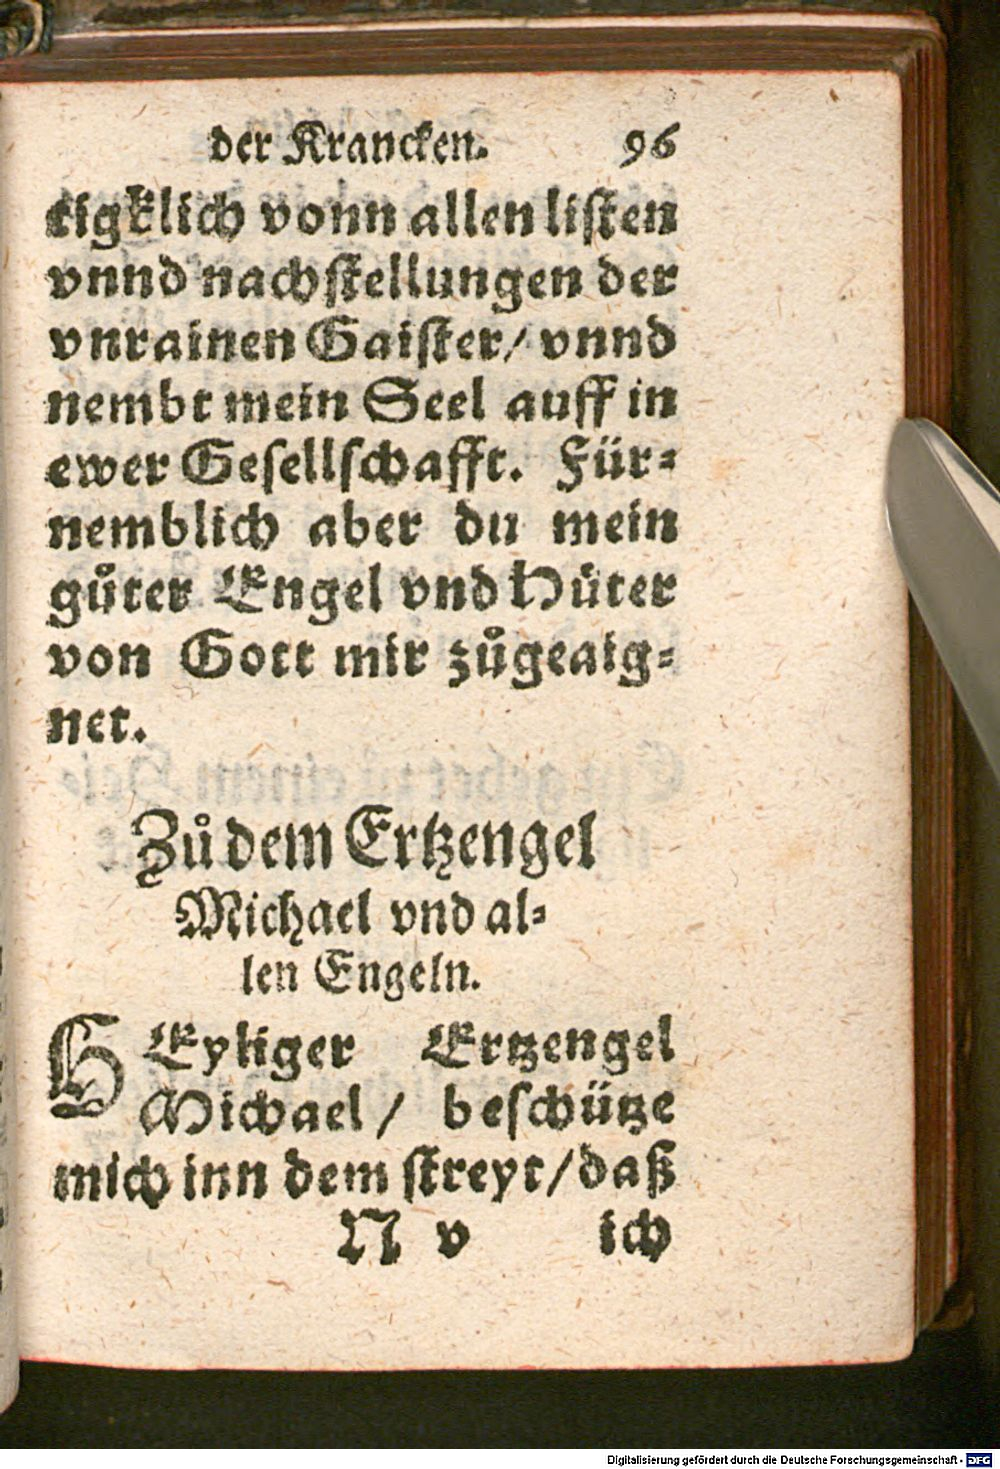 der Krancken. 96
tigklich vonn allen listen
vnnd nachstellungen der
vnrainen Gaister/ vnnd
nembt mein Seel auff in
ewer Gesellschafft. Für-
nemblich aber du mein
gůter Engel vnd Hüter
von Gott mir zůgeaig-
net.
Zů dem Ertzengel
Michael vnd al-
len Engeln.
HEyliger Ertzengel
Michael/ beschütze
mich inn dem streyt/ daß
N v ich
Digitalisierung gefördert durch die Deutsche Forschungsgemeinschaft - DFG